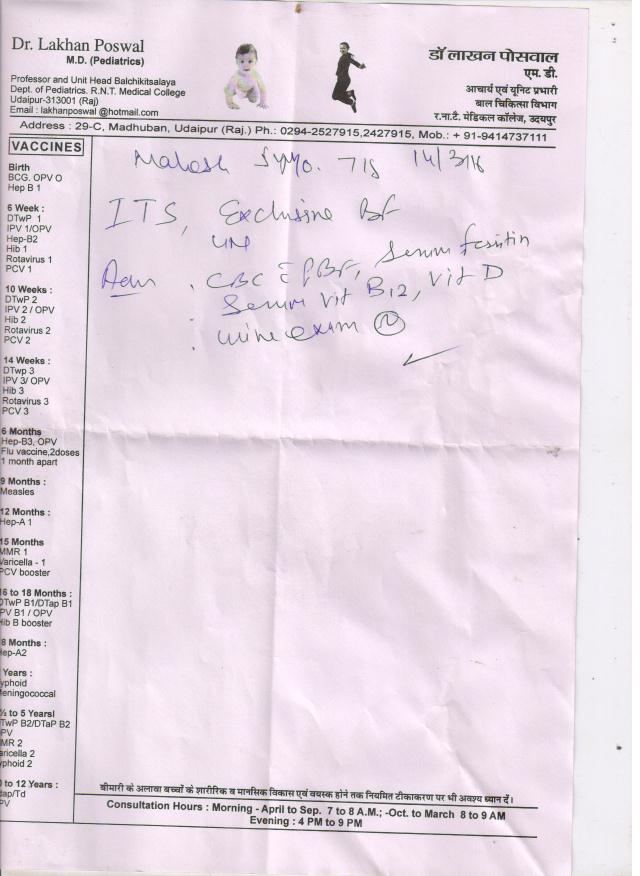 Dr. Lakhan Poswal
M.D. (Pediatrics)
Professor and Unit Head Balchikitsalaya
Dept. of Pediatrics. R.N.T. Medical College
Udaipur-313001 (Raj)
Email : lakhanposwal @hotmail.com
डॉ लाखन पोसवाल
एम. डी.
आचार्य एवं यूनिट प्रभारी
बाल चिकित्सा विभाग
र.ना.टै. मेडिकल कॉलेज, उदयपुर
Address : 29-C, Madhuban, Udaipur (Raj.) Ph.: 0294-2527915,2427915, Mob.: + 91-9414737111
VACCINES
Birth
BCG. OPV O
Hep B 1
6 Week :
DTwP 1
IPV 1/OPV
Hep-B2
Hib 1
Rotavirus 1
PCV 1
10 Weeks :
DTwP 2
IPV 2 / OPV
Hib 2
Rotavirus 2
PCV 2
14 Weeks :
DTwp 3
IPV 3/ OPV
Hib 3
Rotavirus 3
PCV 3
6 Months
Hep-B3, OPV
Flu vaccine,2doses
1 month apart
9 Months :
Measles
12 Months :
Hep-A 1
15 Months
MMR 1
Varicella - 1
PCV booster
6 to 18 Months :
DTwP B1/DTap B1
PV B1 / OPV
Hib B booster
8 Months :
ep-A2
Years :
yphoid
eningococcal
½ to 5 Yearsl
TwP B2/DTaP B2
PV
MR 2
aricella 2
yphoid 2
to 12 Years :
ap/Td
PV
Mahesh 14/3/16
ITS, Exclusive BF
Adv . CBC c PBF, Serum ferritin
Serum Vit B12, Vit D
: urine exam
बीमारी के अलावा बच्चों के शारीरिक व मानसिक विकास एवं वयस्क होने तक नियमित टीकाकरण पर भी अवश्य ध्यान दें।
Consultation Hours : Morning - April to Sep. 7 to 8 A.M.; -Oct. to March 8 to 9 AM
Evening : 4 PM to 9 PM